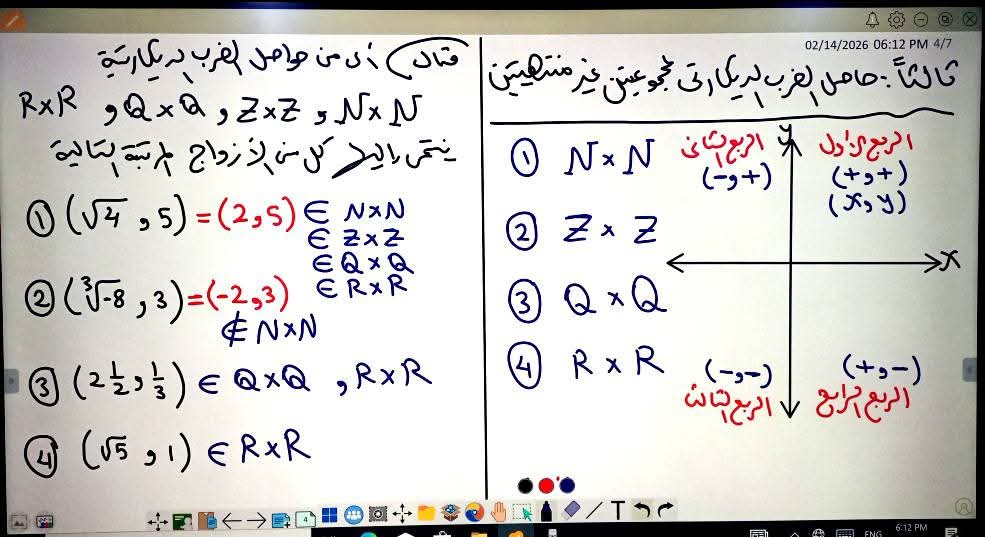 02/14/2026 06:12 PM 4/7
ثالثاً: حاصل الضرب الديكارتى لمجموعتين غير منتهيتين
① N × N
② Z × Z
③ Q × Q
④ R × R
y
x
الربع الأول
(+ و +)
(x و y)
الربع الثانى
(- و +)
(- و -)
الربع الثالث
(+ و -)
الربع الرابع
مثال أى من حواصل الضرب الديكارتية
N × N و Z × Z و Q × Q و R × R
ينتمى إليه كل من الأزواج المرتبة التالية
① (√4 و 5) = (2 و 5) ∈ N × N
∈ Z × Z
∈ Q × Q
∈ R × R
② (∛-8 و 3) = (-2 و 3)
∉ N × N
③ (2 1/2 و 1/3) ∈ Q × Q , R × R
④ (√5 و 1) ∈ R × R
4
T
ENG
6:12 PM